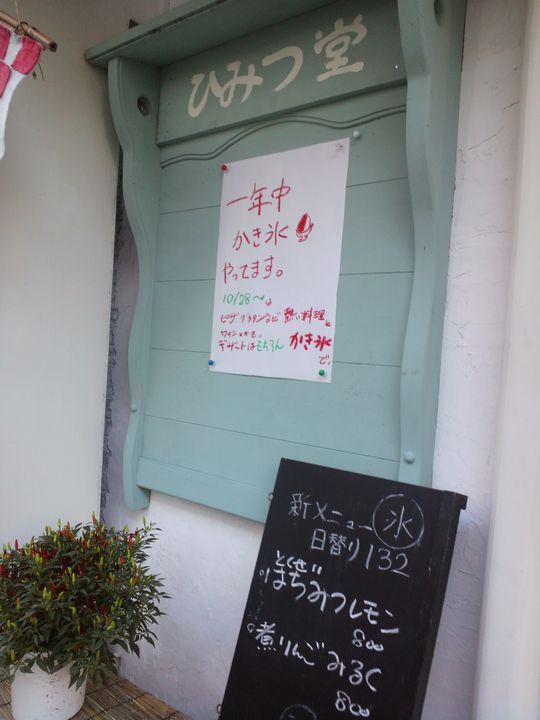 ひみつ堂
一年中
かき氷
やってます。
10/28〜は
ピザ グラタンなど 熱い料理と
ワインとかで。
デザートはもちろん かき氷で。
新メニュー 氷
日替り132
とくせい
はちみつレモン
800
煮りんごみるく
800